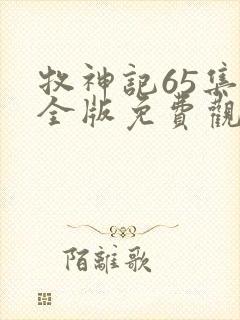 牧神記65集
全版免費觀
陌離歌